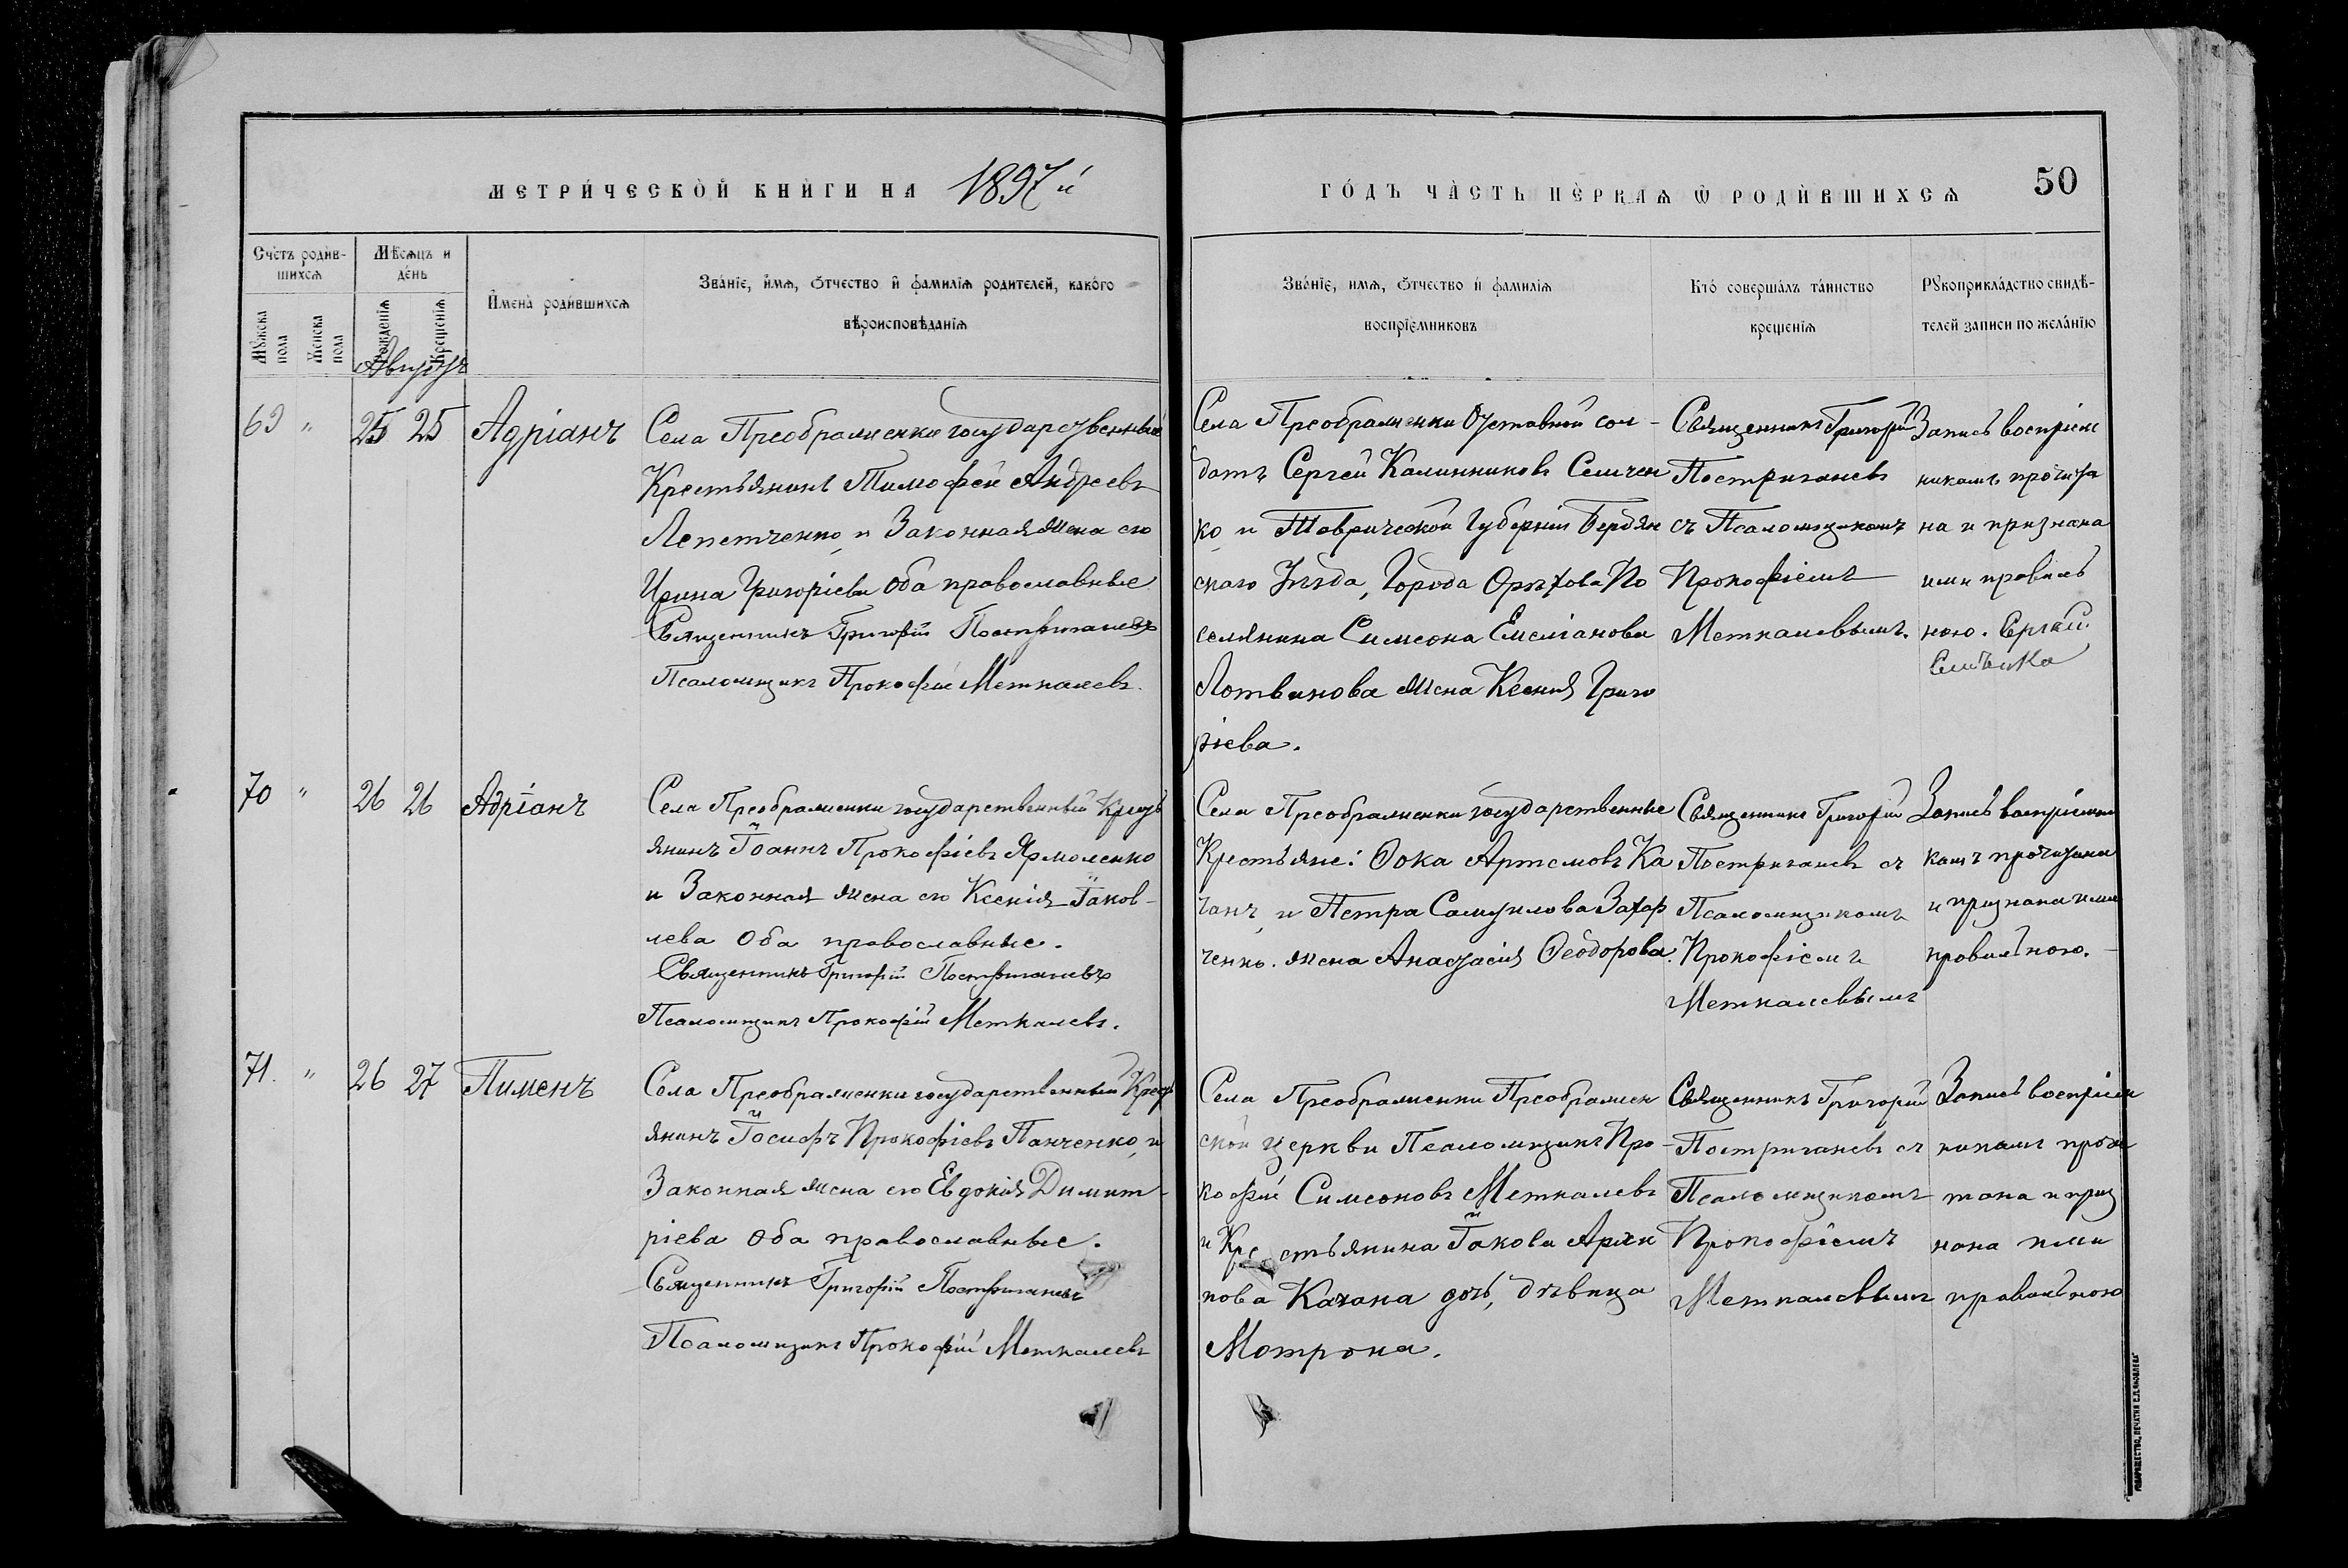 МЕТРИ́ЧЕСКОЙ КНИ́ГИ НА 1897 й
ГО́ДЪ ЧА́СТЬ ПЕ́РВАѦ Ѡ РОДИ́ВШИХСѦ 50
Сче́тъ роди́в-
шихсѧ
Мѣ́сѧцъ и
де́нь
Мꙋжска
пола
Женска
пола
Рожденїѧ
Крещенїѧ
Августъ
Имена̀ роди́вшихсѧ
Зва́нїе, и́мѧ, ѻтчество и фами́лїѧ родителей, како́го
вѣроисповѣданїѧ
Зва́нїе, имѧ, ѻтчество и фамилїѧ
воспрїемниковъ
Кто́ соверша́лъ та́инство
крещенїѧ
Рꙋкоприкла́дство свидѣ-
телей записи по жела́нїю
69 " 25 25 Адріанъ
Села Преображенки государственный
Крестьянинъ Тимофей Андреевъ
Лепетченко, и Законная жена его
Ирина Григоріева Оба православные
Священникъ Григорій Постригачевъ
Псаломщикъ Прокофій Меткалевъ.
Села Преображенки Отставной сол-
датъ Сергей Калинниковъ Семчен
ко, и Таврической Губерніи Бердян
скаго Уезда, Города Орѣхова По
селянина Симеона Емеліанова
Лотвинова жена Ксенія Григо
ріева.
Священникъ Григорій
Постригачевъ
съ Псаломщикомъ
Прокофіемъ
Меткалевымъ.
Запись воспріем
никамъ прочита
на и признана
ими правиль
ною. Сергей
70 " 26 26 Адріанъ
Села Преображенки государственный Кресть
янинъ Іоаннъ Прокофіевъ Ярмоленко
и Законная жена его Ксенія Іаков-
лева Оба православные.
Священникъ Григорій Постригачевъ
Псаломщикъ Прокофій Меткалевъ.
Села Преображенки государственные
Крестьяне: Фока Артемовъ Ка
чанъ, и Петра Самуилова Захар
ченко. жена Анастасія Феодорова.
Священникъ Григорій
Постригачевъ съ
Псаломщикомъ
Прокофіемъ
Меткалевымъ
Запись воспріемни
камъ прочитана
и признана ими
правильною.
71. " 26 27 Пименъ
Села Преображенки государственный Кресть
янинъ Іосифъ Прокофіевъ Панченко, и
Законная жена его Евдокія Димит-
ріева Оба православные.
Священникъ Григорій Постригачевъ
Псаломщикъ Прокофій Меткалевъ
Села Преображенки Преображен
ской церкви Псаломщикъ Про-
кофій Симеоновъ Меткалевъ
и Крестьянина Іакова Архи
пова Качана дочь, дѣвица
Мотрона.
Священникъ Григорій
Постригачевъ съ
Псаломщикомъ
Прокофіемъ
Меткалевымъ
Запись воспріем
никамъ прочи
тана и приз
нана ими
правильною